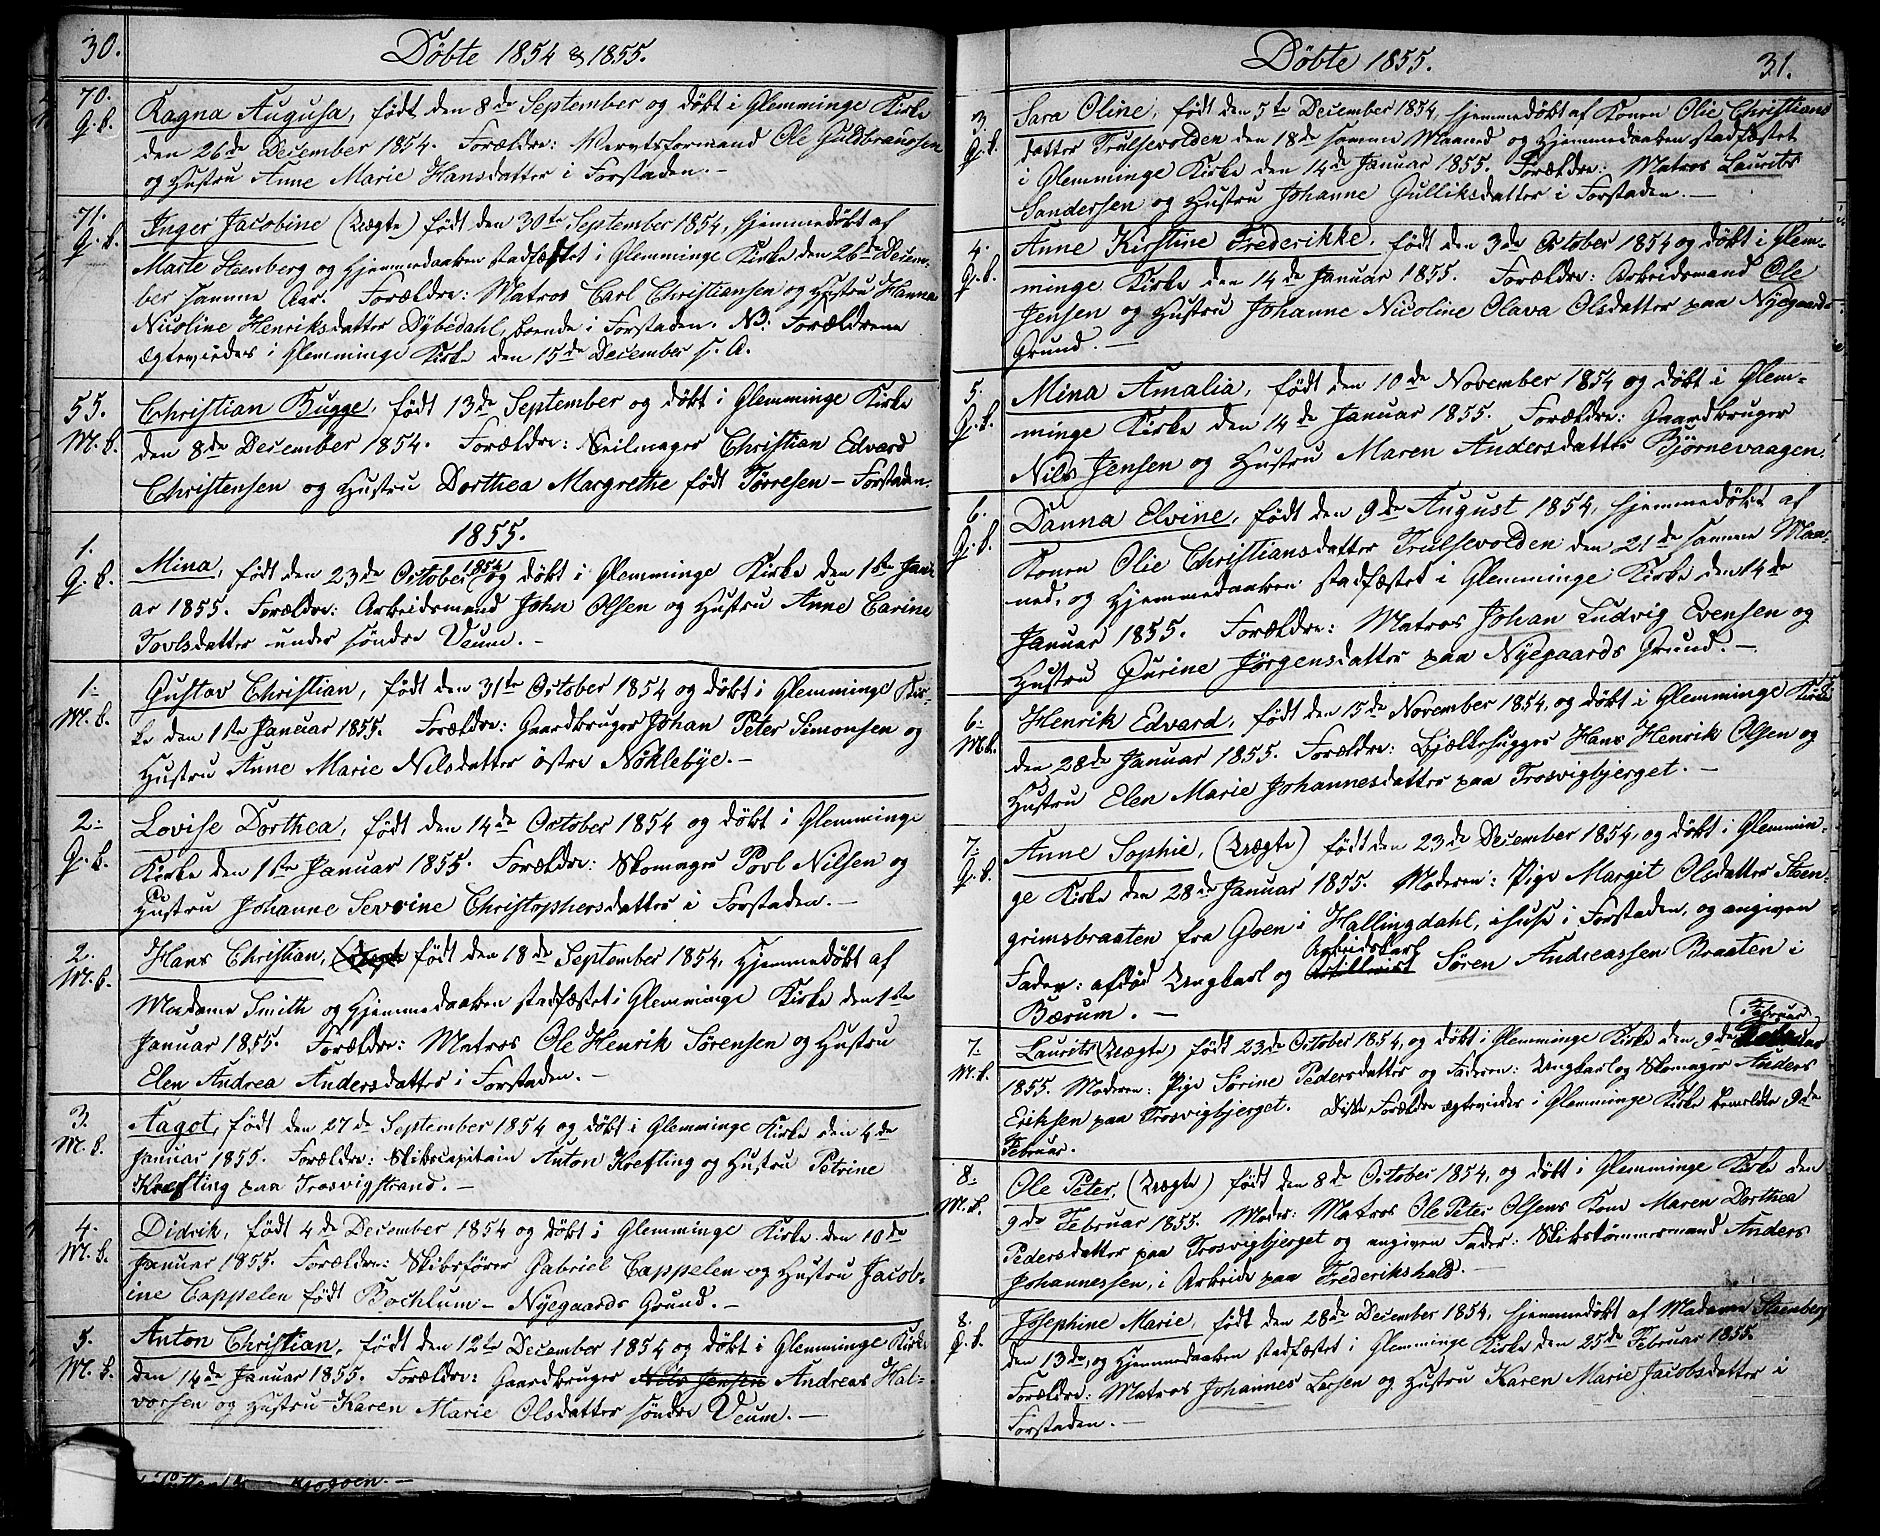 30.
Döbte 1854 & 1855.
70.
Q. k.
Ragna Augusa, født den 8de September og døbt i Glemminge Kirke
den 26de December 1854. Forældre: Værvsformand Ole Guldbransen
og Hustru Anne Marie Hansdatter i Forstaden. –
71.
Q. k.
Inger Jacobine (Uægte) født den 30te September 1854, hjemmedøbt af
Marte Steenberg og Hjemmedaaben stadfæstet i Glemminge Kirke den 26de Decem-
ber samme Aar. Forældre: Matros Carl Christiansen og Hustru Hanna
Nicoline Henriksdatter Dybedahl, boende i Forstaden. NB: Forældrene
ægteviedes i Glemminge Kirke den 15de December s. A.
55.
M. k.
Christian Bugge, født 13de September og døbt i Glemminge Kirke
den 8de December 1854. Forældre: Seilmager Christian Edvard
Christensen og Hustru Dorthea Margrethe født Törresen – Forstaden.
1855.
1.
Q. k.
Mina, født den 23de October 1854 og døbt i Glemminge Kirke den 1ste Janu-
ar 1855. Forældre: Arbeidsmand John Olsen og Hustru Anne Carine
Povlsdatter under söndre Veum. –
1.
M. k.
Gustav Christian, født den 31te October 1854 og døbt i Glemminge Kir-
ke den 1ste Januar 1855. Forældre: Gaardbruger Johan Peter Simonsen og
Hustru Anne Marie Nilsdatter östre Nöklebye. –
2.
Q. k.
Lovise Dorthea, født den 14de October 1854 og døbt i Glemminge
Kirke den 1ste Januar 1855. Forældre: Skomager Povl Nilsen og
Hustru Johanne Sevrine Christophersdatter i Forstaden. –
2.
M. k.
Hans Christian, født den 18de September 1854, Hjemmedøbt af
Madame Smith og Hjemmedaaben stadfæstet i Glemminge Kirke den 1ste
Januar 1855. Forældre: Matros Ole Henrik Sörensen og Hustru
Elen Andrea Andersdatter i Forstaden. –
3.
M. k.
Aagot, født den 27de September 1854 og døbt i Glemminge Kirke den 4de
Januar 1855. Forældre: Skibscapitain Anton Krefting og Hustru Petrine
Krefting paa Trosvigstrand. –
4.
M. k.
Didrik, født 4de December 1854 og døbt i Glemminge Kirke den 10de
Januar 1855. Forældre: Skibsfører Gabriel Cappelen og Hustru Jacob-
ine Cappelen født Bochlum – Nyegaards Grund. –
5.
M. k.
Anton Christian, født den 12te December 1854 og døbt i Glemminge Kirke
den 14de Januar 1855. Forældre: Gaardbruger Nils Jensen Andreas Hal-
vorsen og Hustru Karen Marie Olsdatter söndre Veum. –
Döbte 1855.
31.
3.
Q. k.
Sara Oline, født den 5te December 1854, hjemmedøbt af Konen Olie Christians
datter Trulsevolden den 18de samme Maaned og Hjemmedaaben stadfæstet
i Glemminge Kirke den 14de Januar 1855. Forældre: Matros Laurits
Sandersen og Hustru Johanne Gulliksdatter i Forstaden. –
4.
Q. k.
Anne Kirstine Frederikke, født den 3de October 1854 og døbt i Glem-
minge Kirke den 14de Januar 1855. Forældre: Arbeidsmand Ole
Jensen og Hustru Johanne Nicoline Olava Olsdatter paa Nyegaards
Grund. –
5.
Q. k.
Mina Amalia, født den 10de November 1854 og døbt i Glem-
minge Kirke den 14de Januar 1855. Forældre: Gaardbruger
Nils Jensen og Hustru Maren Andersdatter Bjørnevaagen.
6.
Q. k.
Danna Elvine, født den 9de August 1854, hjemmedøbt af
Konen Olie Christiansdatter Trulsevolden den 21de samme Maa-
ned, og Hjemmedaaben stadfæstet i Glemminge Kirke den 14de
Januar 1855. Forældre: Matros Johan Ludvig Evensen og
Hustru Gurine Jörgensdatter paa Nyegaards Grund. –
6.
M. k.
Henrik Edvard, født den 15de November 1854, og døbt i Glemminge Kirke
den 28de Januar 1855. Forældre: Bjælkehugger Hans Henrik Olsen og
Hustru Elen Marie Johannesdatter paa Trosvigbjerget. –
7.
Q. k.
Anne Sophie, (Uægte) født den 23de December 1854, og døbt i Glemmin-
ge Kirke den 28de Januar 1855. Moderen: Pige Margit Olsdatter Steen-
grimsbraaten fra Goen i Hallingdahl, i Huse i Forstaden, og angiven
Arbeidskarl
Fader: afdød Ungkarl og Artillerist Sören Andreassen Braaten i
Bærum. –
Februar
7.
M. k.
Laurits (Uægte) født 23de October 1854, og døbt i Glemminge Kirke den 9de
1855. Moderen: Pige Sörine Pedersdatter og Faderen: Ungkarl og Skomager Anders
Eriksen paa Trosvigbjerget. Disse Forældre ægteviedes i Glemminge Kirke bemeldte 9de
Februar.
8.
M. k.
Ole Peter, (Uægte) født den 8de October 1854, og døbt i Glemminge Kirke den
9de Februar 1855. Moder: Matros Ole Peter Olsens Kone Maren Dorthea
Pedersdatter paa Trosvigbjerget og angiven Fader: Skibstømmermand Anders
Johannessen, i Arbeide paa Frederikshald. –
8.
Q. k.
Josephine Marie, født den 28de December 1854, hjemmedøbt af Madame Steenberg
den 13de, og Hjemmedaaben stadfæstet i Glemminge Kirke den 25de Februar 1855.
Forældre: Matros Johannes Larsen og Hustru Karen Marie Jacobsdatter i
Forstaden. –